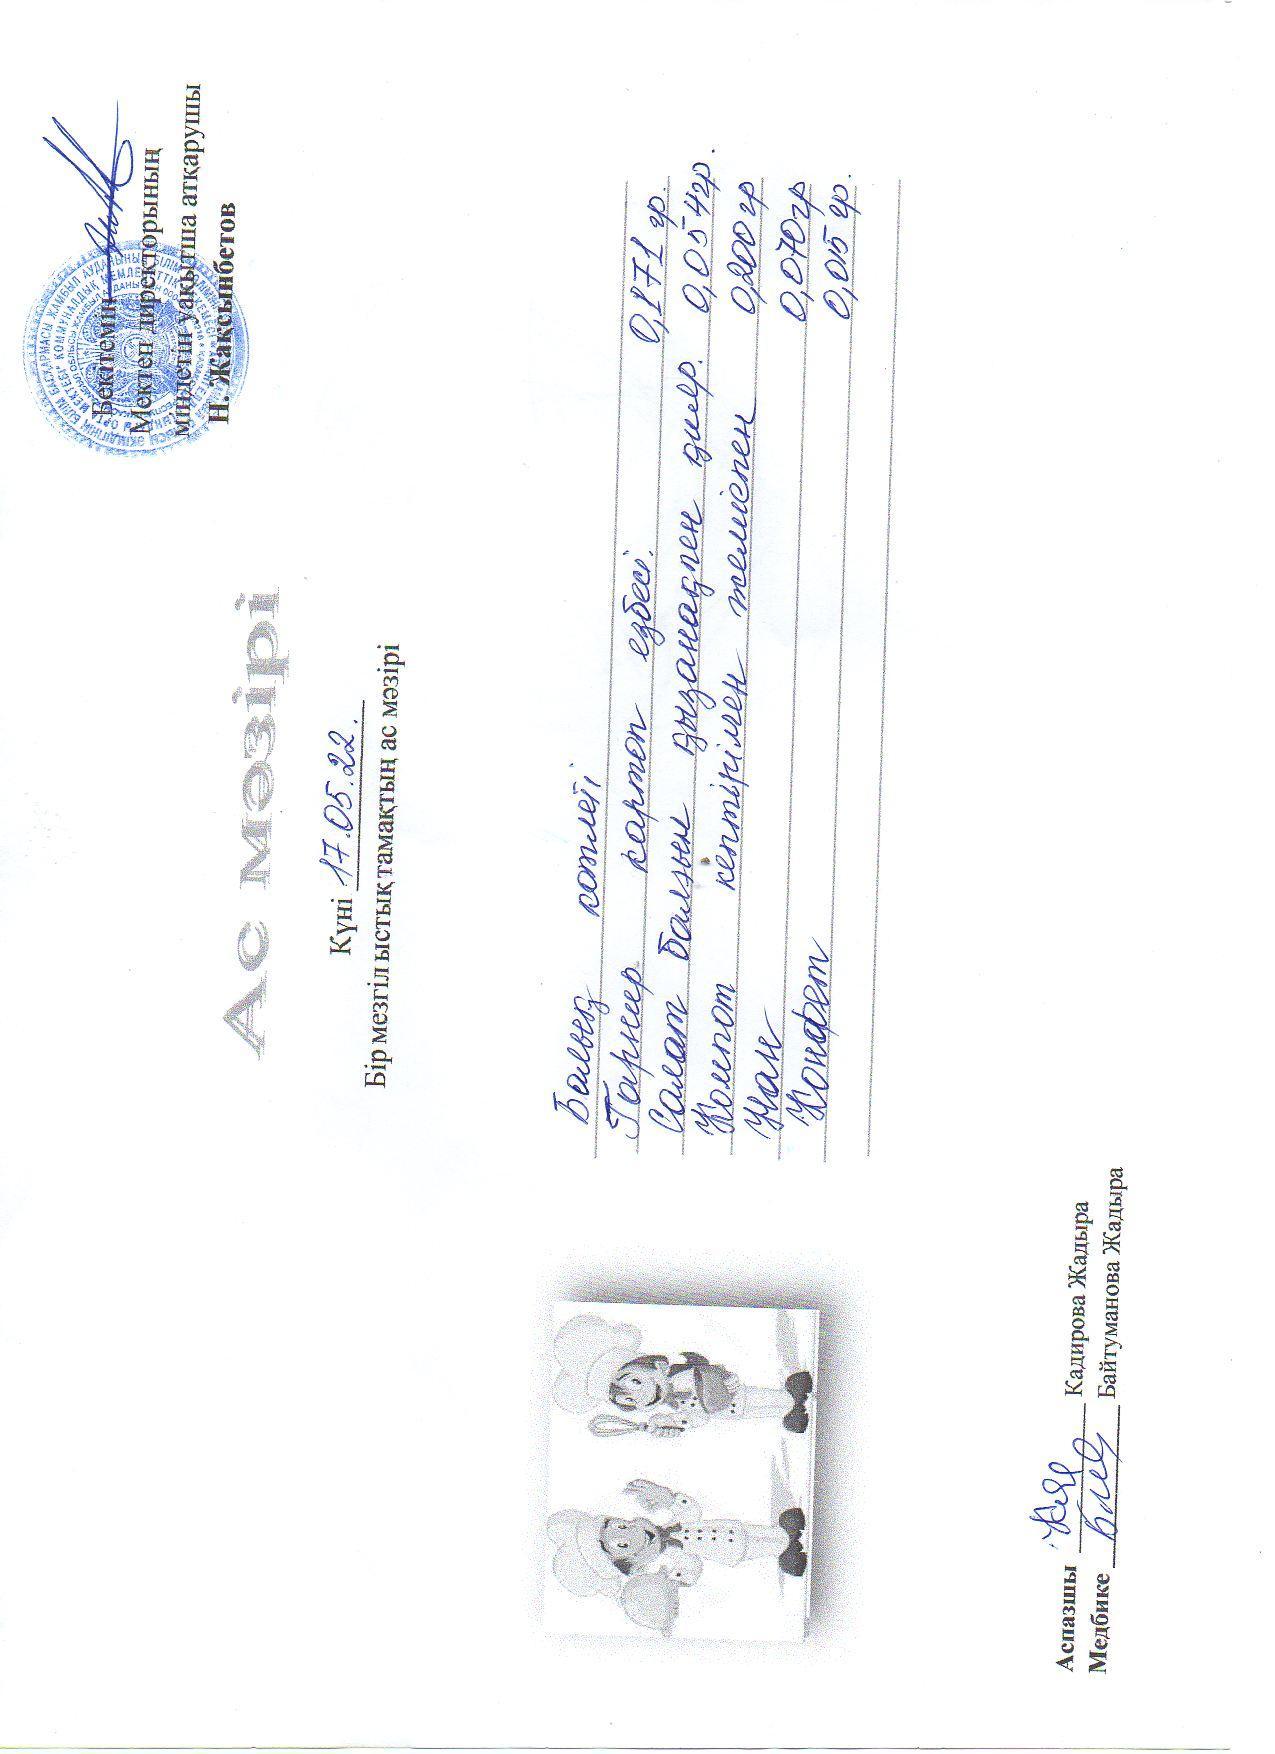 Бекітемін
Мектеп директорының
міндетін уақытша атқарушы
Н. Жақсынбетов
Ас мәзірі
Күні 17.05.22.
Бір мезгіл ыстық тамақтың ас мәзірі
Балық котлеті
Гарнир картоп езбесі. 0,171 гр.
Салат балғын қызанақпен қияр. 0,054гр.
Компот кептірілген жеміспен 0,200гр
Нан 0,070гр
Конфет 0,015 гр.
Аспазшы Кадирова Жадыра
Медбике Байтуманова Жадыра